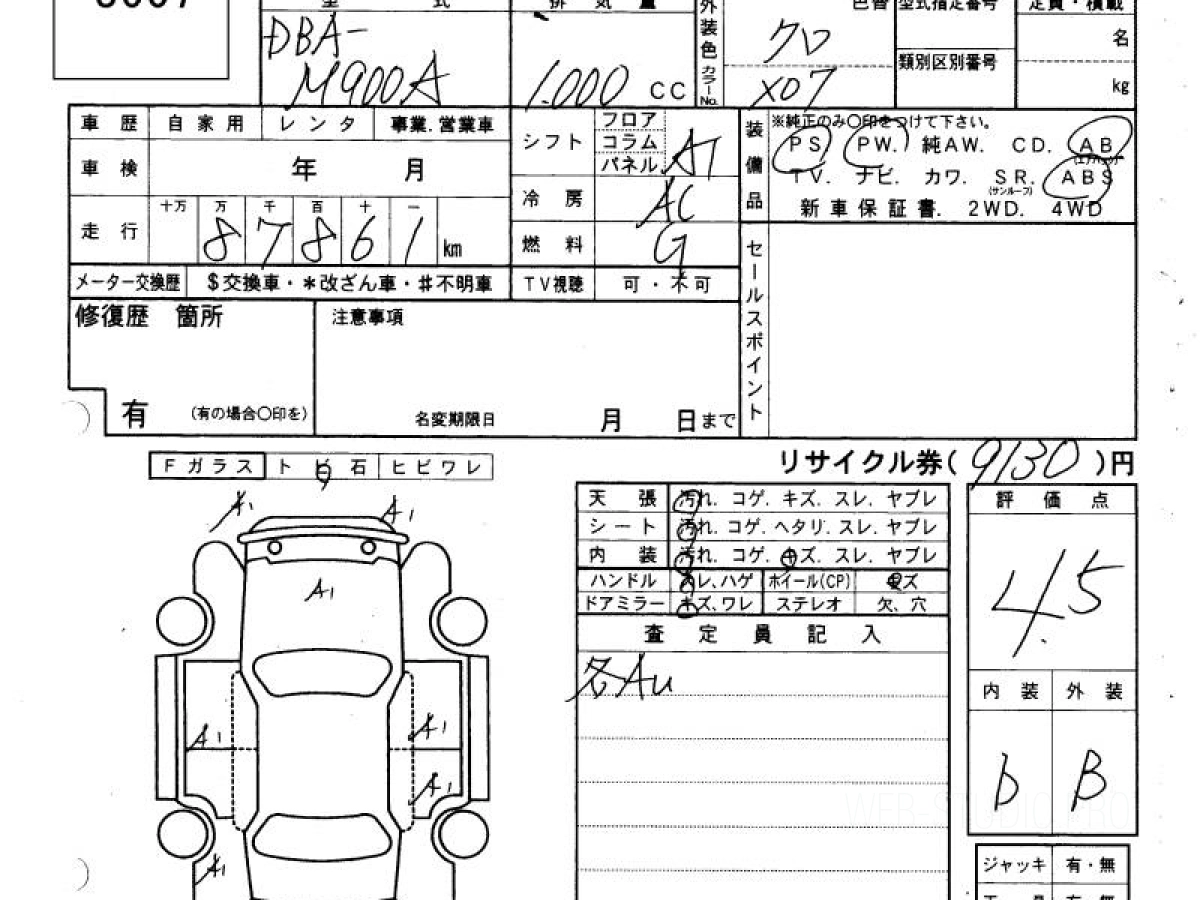 型 式
排 気 量
外装色 カラーNo.
色替
型式指定番号
定員・積載
DBA-
M900A
1.000 CC
クロ
X07
類別区別番号
名
kg
車歴 自家用 レンタ 事業.営業車
シフト フロア コラム パネル AT
装備品
※純正のみ〇印をつけて下さい。
PS PW. 純AW. CD. AB
(エアバッグ)
車検 年 月
冷房 AC
TV. ナビ. カワ. SR. ABS
(サンルーフ)
新車保証書. 2WD. 4WD
走行 十万 万 千 百 十 一
8 7 8 6 1 km
燃料 G
セールスポイント
メーター交換歴 $交換車・*改ざん車・#不明車
TV視聴 可・不可
修復歴 箇所
注意事項
有 (有の場合〇印を)
名変期限日 月 日まで
Fガラス トビ石 ヒビワレ
リサイクル券(9130)円
天張 汚れ. コゲ. キズ. スレ. ヤブレ
シート 汚れ. コゲ. ヘタリ. スレ. ヤブレ
内装 汚れ. コゲ. キズ. スレ. ヤブレ
ハンドル スレ、ハゲ ホイール(CP) キズ
ドアミラー キズ、ワレ ステレオ 欠、穴
評価点
4.5
査定員記入
各AU
内装 外装
b B
A1 A1
A1
A1 A1
A1
A1
WEB-STUDIO.PRO
ジャッキ 有・無